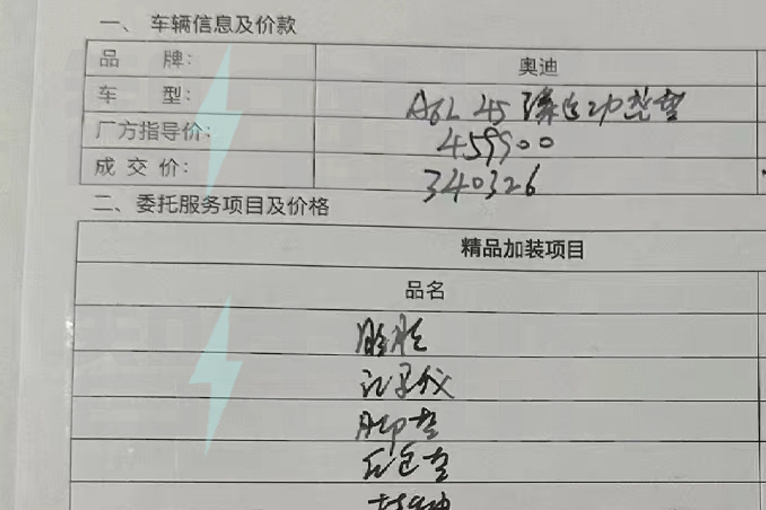 一、车辆信息及价款
品 牌： 奥迪
车 型： A6L 45 臻选动感型
厂方指导价： 459900
成 交 价： 340326
二、委托服务项目及价格
精品加装项目
品名
记录仪
脚垫
后包垫